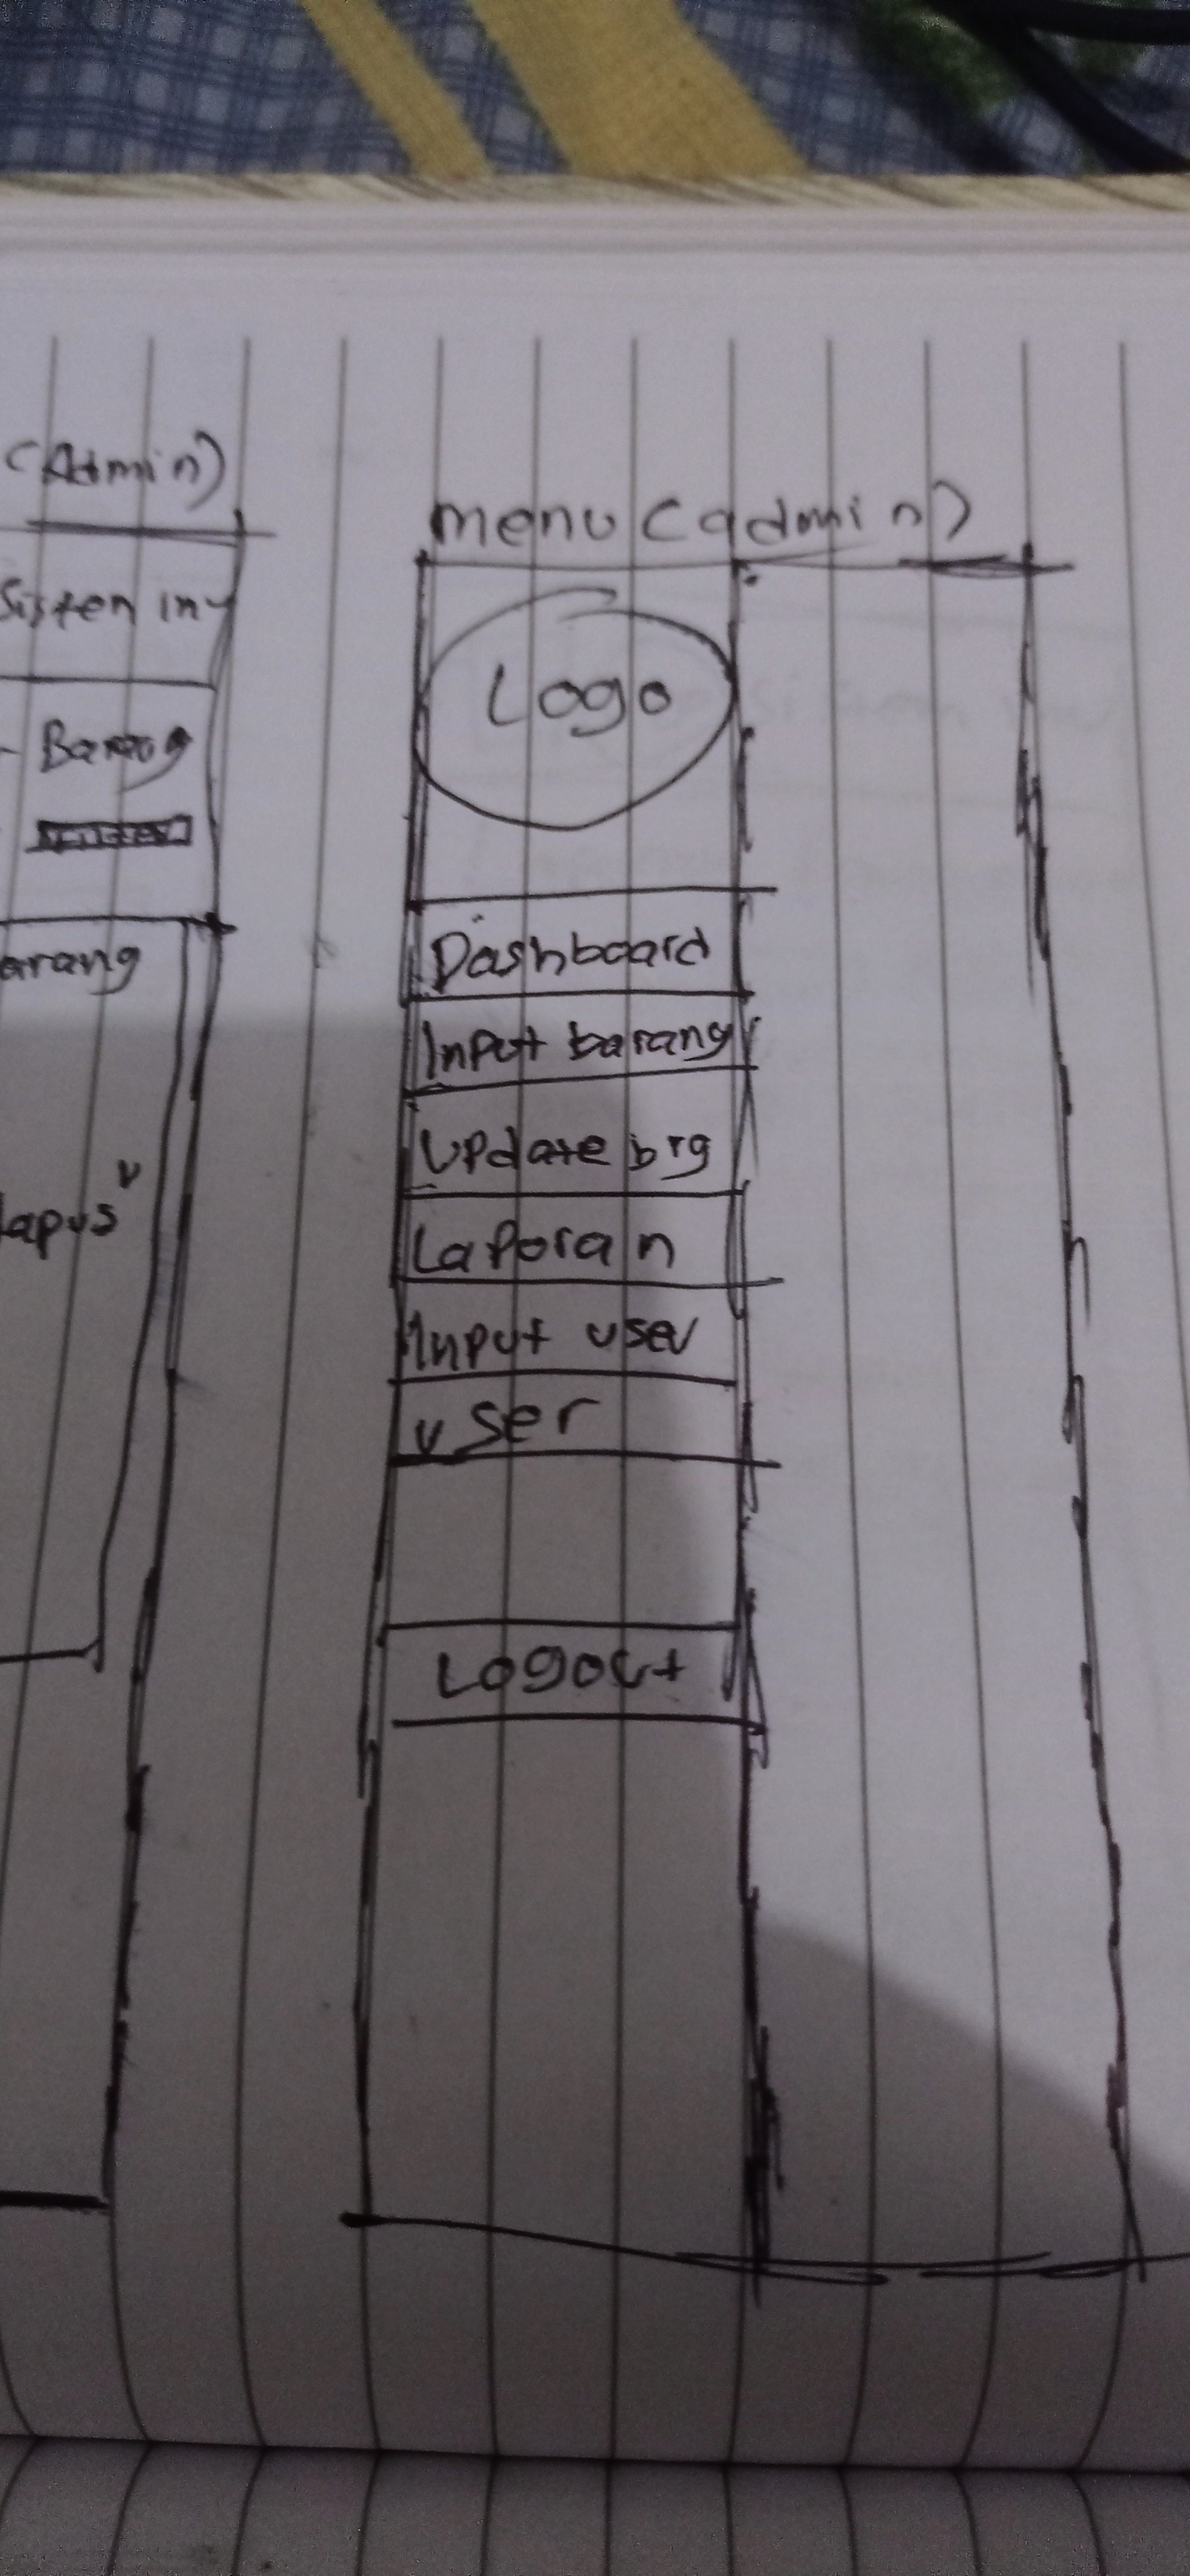 (Admin)
Sistem inv
- Barang
arang
apus
menu (admin)
Logo
Dashboard
Input barang
Update brg
Laporan
Input user
user
Logout